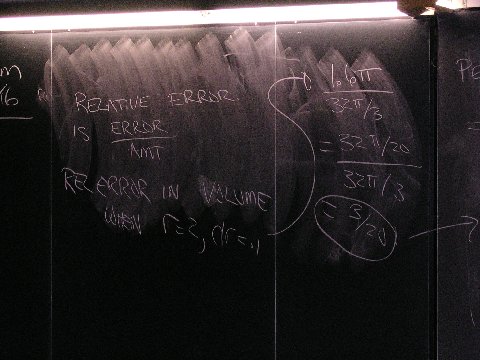 RELATIVE ERROR
IS ERROR
AMT
REL ERROR IN VOLUME
WHEN r=2, dr=.1
1.6π
32π/3
= 32π/20
32π/3
= 3/20